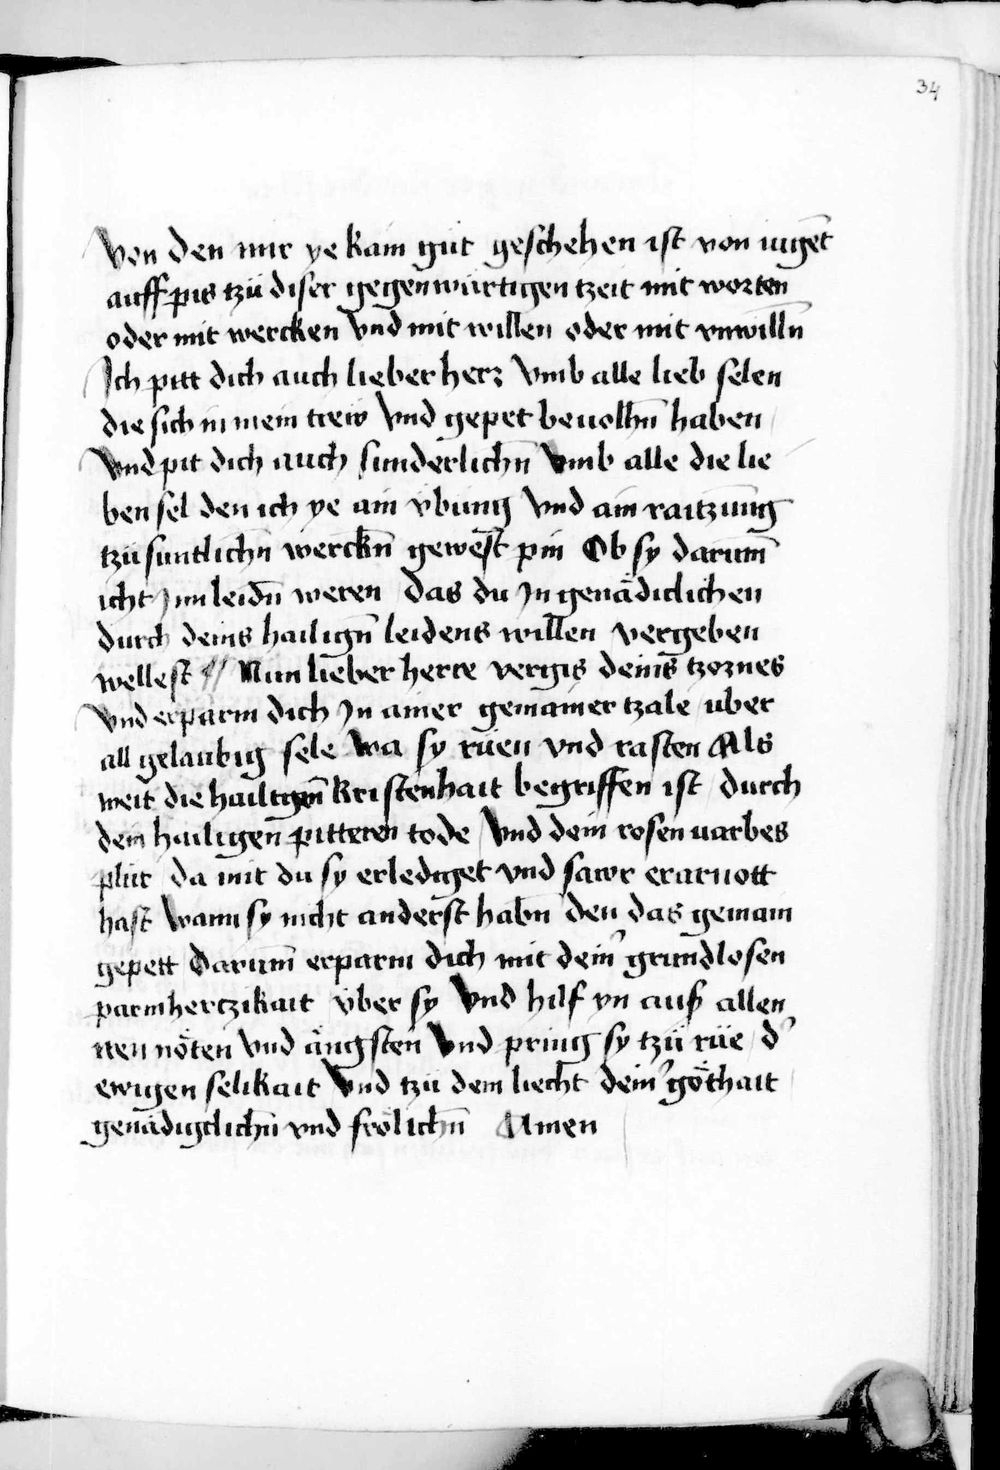 34
Von den mir ye kain güt geschehen ist von iugēt
auff pis tzü diser gegenwürtigen tzeit mit worten
oder mit wercken Vnd mit willen oder mit vnwillñ
Ich pitt dich auch lieber herz Vmb alle lieb selen
die sich in mein trew Vnd gepet beuolhñ haben
Vnd pit dich auch sunderlichñ Vmb alle die lie
ben sel den ich ye ain vbung Vnd ain raitzung
tzü suntlichñ werckñ gewest pin Ob sy darum̄
icht Inn leidñ weren das du In genädiclichen
durch deins hailigñ leidens willen vergeben
wellest // Nun lieber herre vergis deins tzornes
Vnd erparm dich In ainer gemainer tzale uber
all gelaubig sele wa sy rüen vnd rasten Als
weit die hailigen kristenhait begriffen ist durch
dein hailigen pitteren tode Vnd dein rosen uarbes
plüt da mit du sy erlediget vnd sawr erarnott
hast Wann sy nicht anderst habñ den das gemain
gepett Darum̄ erparm dich mit dein' grundlosen
parmhertzikait vber sy Vnd hilf yn auß allen
iren nöten vnd ängsten Vnd pring sy tzü rüe d'
ewigen selikait Vnd tzü dem liecht dein' göthait
genädigclichñ vnd frölichñ Amen